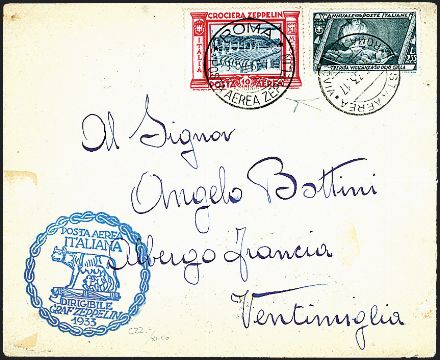 CROCIERA ZEPPELIN
ITALIA
POSTA AEREA
ROMA
POSTA AEREA ZEPPELIN
ANNUALE POSTE ITALIANE
Al Signor
Angelo Bottini
Albergo Francia
Ventimiglia
POSTA AEREA
ITALIANA
DIRIGIBILE
GRAF ZEPPELIN
1933